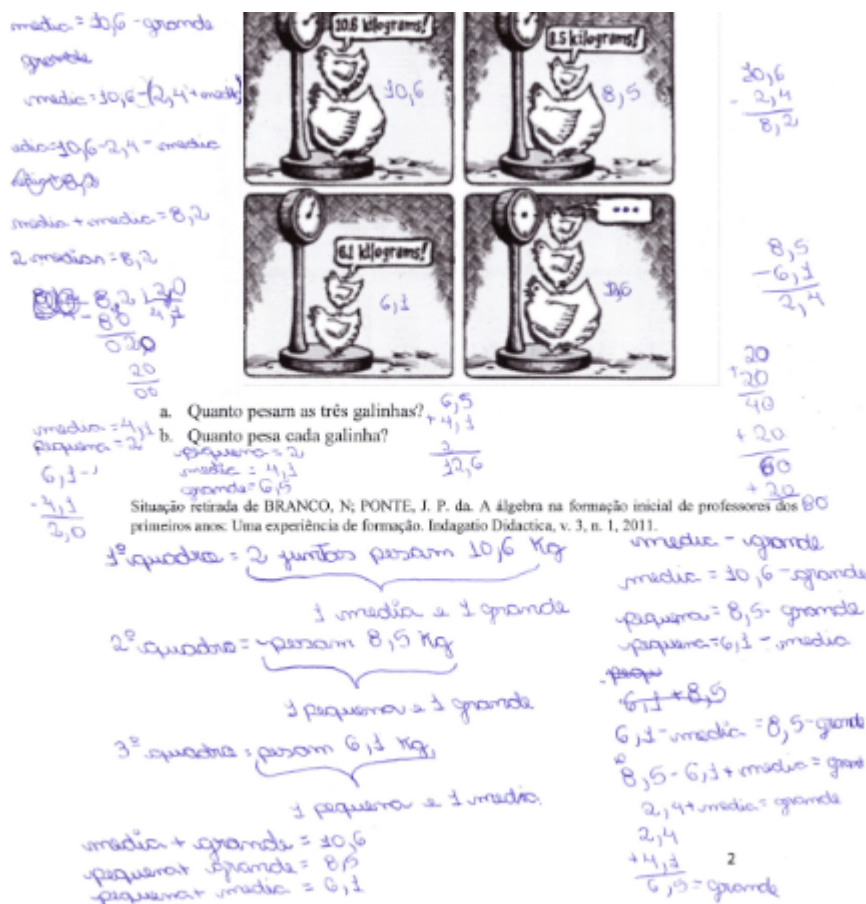 media = 10,6 - grande
grande
media = 10,6 - (2,4 + media)
edia = 10,6 - 2,4 - media
media + media = 8,2
2 medias = 8,2
8,2
- 80
4,1
020
20
00
media = 4,1
pequena = 2
6,1
- 4,1
2,0
10.6 kilograms!
10,6
8.5 kilograms!
8,5
6.1 kilograms!
6,1
...
10,6
- 2,4
8,2
8,5
- 6,1
2,4
20
+ 20
40
+ 20
60
+ 20
80
a. Quanto pesam as três galinhas?
b. Quanto pesa cada galinha?
pequena = 2
media = 4,1
grande = 6,5
6,5
+ 4,1
2
12,6
Situação retirada de BRANCO, N; PONTE, J. P. da. A álgebra na formação inicial de professores dos
primeiros anos: Uma experiência de formação. Indagatio Didactica, v. 3, n. 1, 2011.
1º quadro = 2 juntas pesam 10,6 Kg
1 media e 1 grande
2º quadro = pesam 8,5 Kg
1 pequena e 1 grande
3º quadro = pesam 6,1 Kg,
1 pequena e 1 media.
media + grande = 10,6
pequena + grande = 8,5
pequena + media = 6,1
media - grande
media = 10,6 - grande
pequena = 8,5 - grande
pequena = 6,1 - media
pequ
6,1 + 8,5
6,1 - media = 8,5 - grande
8,5 - 6,1 + media = grand
2,4 + media = grande
2,4
+ 4,1
6,5 = grande
2